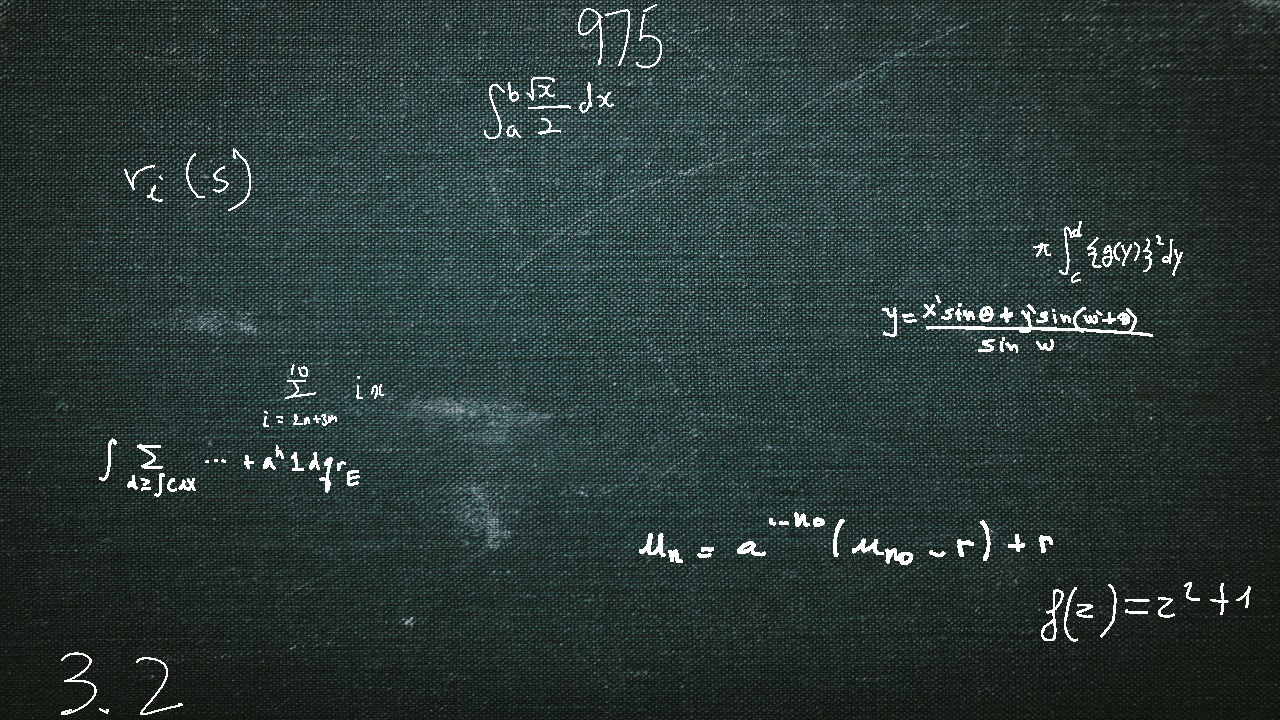 975
\int_a^b \frac{\sqrt{x}}{2} dx
r_i (s)
\pi \int_c^d \{g(y)\}^2 dy
y = \frac{x' \sin \theta + y' \sin(w + \theta)}{\sin w}
\sum_{i=2n+3m}^{10} ix
\int \sum_{d \geq \int c dx} \cdots + a^h 1 d q r_E
u_n = a^{--n_0} (u_{n_0} - r) + r
f(z) = z^2 + 1
3.2